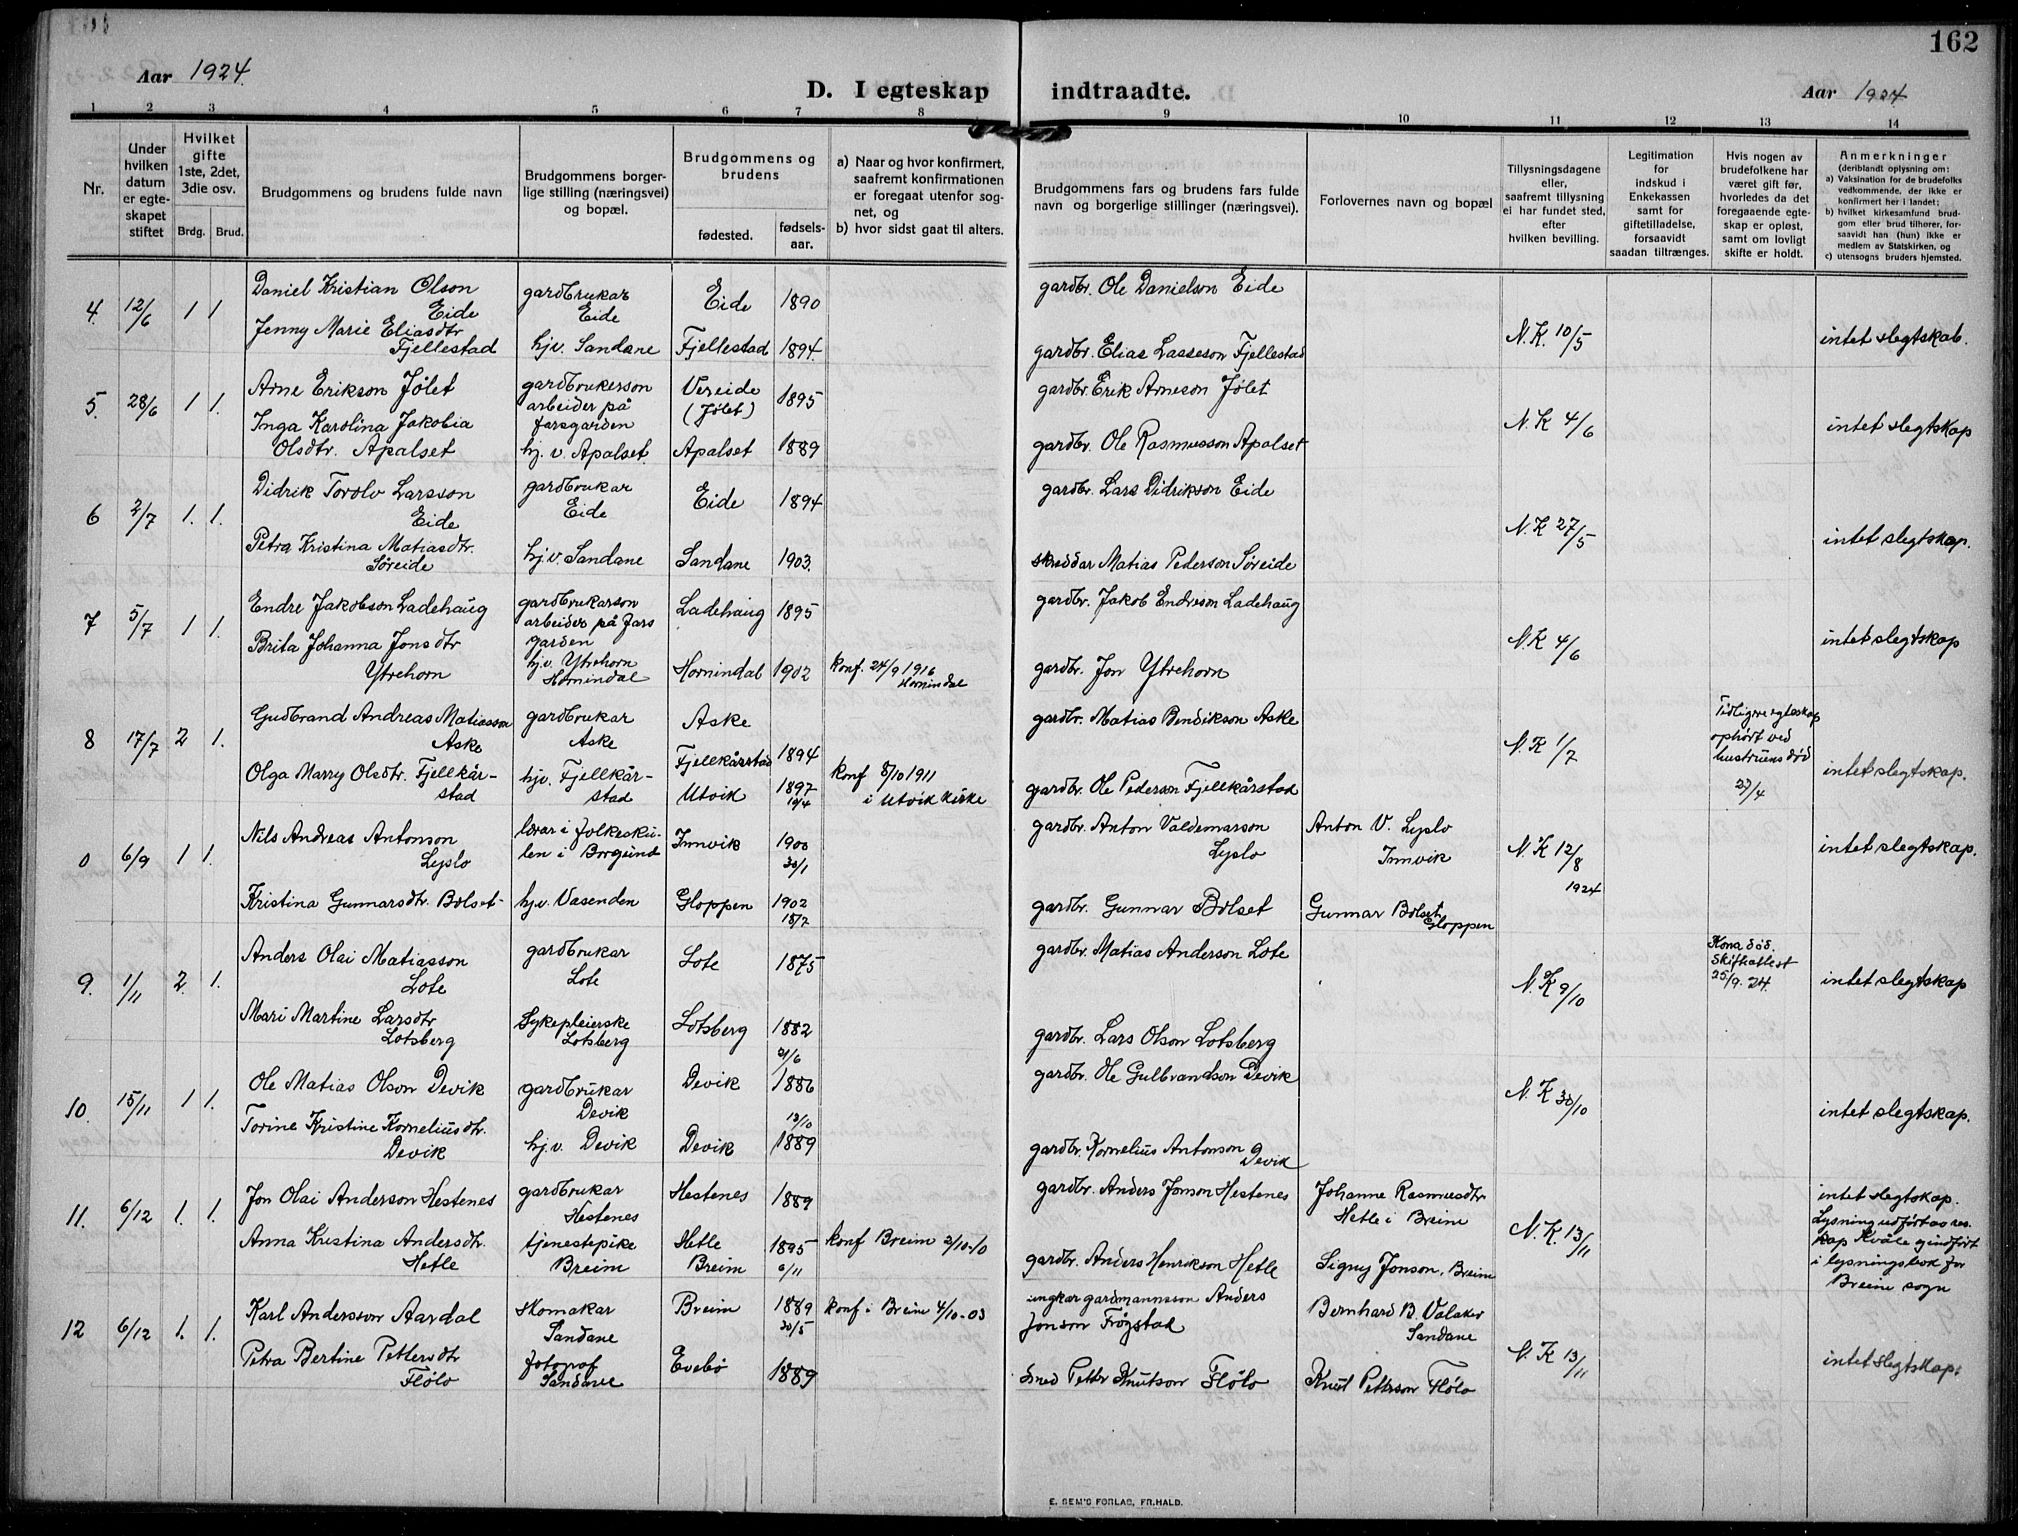 162
Aar 1924.
D. I egteskap indtraadte.
Aar 1924
1 2 3 4 5 6 7 8 9 10 11 12 13 14
Nr.
Under hvilken datum er egte-skapet stiftet
Hvilket gifte 1ste, 2det, 3die osv.
Brdg. Brud.
Brudgommens og brudens fulde navn
Brudgommens borger-lige stilling (næringsvei) og bopæl.
Brudgommens og brudens
fødested.
fødsels-aar.
a) Naar og hvor konfirmert, saafremt konfirmationen er foregaat utenfor sog-net, og
b) hvor sidst gaat til alters.
Brudgommens fars og brudens fars fulde navn og borgerlige stillinger (næringsvei).
Forlovernes navn og bopæl
Tillysningsdagene eller, saafremt tillysning ei har fundet sted, efter hvilken bevilling.
Legitimation for indskud i Enkekassen samt for giftetilladelse, forsaavidt saadan tiltrænges.
Hvis nogen av brudefolkene har været gift før, hvorledes da det foregaaende egte-skap er opløst, samt om lovligt skifte er holdt.
Anmerkninger (deriblandt oplysning om:
a) Vaksination for de brudefolks vedkommende, der ikke er konfirmert her i landet;
b) hvilket kirkesamfund brud-gom eller brud tilhører, for-saavidt han (hun) ikke er medlem av Statskirken, og
c) utensogns bruders hjemsted.
4. 12/6 1 1 Daniel Kristian Olson Eide gardbrukar Eide Eide 1890 gardbr. Ole Danielson Eide
Jenny Marie Eliasdtr Fjellestad hjv. Sandane Fjellestad 1894. gardbr. Elias Lasseson Fjellestad N.K. 10/5 intet slegtskab.
5. 28/6 1 1. Arne Erikson Jølet gardbrukerson arbeider på farsgarden Vereide (Jølet) 1895 gardbr. Erik Arneson Jølet
Inga Karolina Jakobia Olsdtr. Apalset hj. v. Apalset. Apalset 1889 gardbr. Ole Rasmusson Apalset N.K 4/6 intet slegtskap
6 2/7 1. 1. Didrik Torolv Larsson Eide gardbrukar Eide Eide 1894 gardbr. Lars Didrikson Eide
Petra Kristina Matiasdtr. Søreide hj.v. Sandane Sandane 1903. skreddar Matias Pederson Søreide N.K 27/5 intet slegtskap.
7 5/7 1 1. Endre Jakobson Ladehaug gardbrukarson arbeider på fars garden Ladehaug 1895 gardbr. Jakob Endreson Ladehaug
Brita Johanna Jonsdtr Ytrehorn hj.v. Ytrehorn Hornindal Hornindal 1902 konf. 24/9 1916 Hornindal gardbr. Jon Ytrehorn N.K 4/6 intet slegtskap
8 17/7 2 1. Gudbrand Andreas Matiasson Aske gardbrukar Aske Aske Fjellkårstad 1894 gardbr. Matias Bendikson Aske
Olga Marry Olsdtr. Fjellkår-stad hjv. Fjellkår-stad Utvik 1897 10/4 konf 8/10 1911 i Utvik kirke gardbr. Ole Pederson Fjellkårstad N.K 1/7 Tidligere egteskap ophørt ved hustruens død 27/4 intet slegtskap.
0 6/9 1 1. Nils Andreas Antonson Lyslo lærar i folkesku-len i Borgund Innvik 1900 30/1 gardbr. Anton Valdemarson Lyslo Anton V. Lyslo Innvik
Kristina Gunnarsdtr. Bolset hj.v. Vasenden Gloppen 1902 18/7 gardbr. Gunnar Bolset Gunnar Bolset Gloppen N.K 12/8 1924 intet slegtskap.
9. 1/11 2. 1. Anders Olai Matiasson Lote gardbrukar Lote Lote 1875 gardbr. Matias Anderson Lote
Mari Martine Larsdtr Lotsberg Sykepleierske Lotsberg Lotsberg 1882 gardbr. Lars Olson Lotsberg N.K 9/10 Kona død. Skifteattest 25/9. 24. intet slegtskap
10. 15/11 1 1. Ole Matias Olson Devik gardbrukar Devik Devik 21/6 1886 gardbr. Ole Gulbrandson Devik
Torine Kristine Korneliusdtr. Devik hj.v. Devik Devik 12/10 1889 gardbr. Kornelius Antonson Devik N.K 30/10 intet slegtskap.
11. 6/12 1. 1. Jon Olai Anderson Hestenes gardbrukar Hestenes Hestenes 1889 gardbr. Anders Jonson Hestenes Johanne Rasmusdtr Hetle i Breim
Anna Kristina Andersdtr. Hetle tjenestepike Breim Hetle Breim 1895 6/11 konf Breim 2/10-10 gardbr. Anders Henrikson Hetle Signy Jonson, Breim N.K 13/11 intet slegtskap. Lysning utført av res. kap Kvåle g indført i lysningsbok for Breim sogn
12 6/12 1. 1. Karl Andersson Aardal skomakar Sandane Breim 1889 30/5 konf. i Breim 4/10-03 ungkar gardmannsson Anders Jonson Frøystad Bernhard B. Valaker Sandane
Petra Bertine Pettersdtr Fløl​o fotograf Sandane Evebø 1889 Smed Petter Knutson Flølo Knut Petterson Flølo N.K 13/11 intet slegtskap.
E. SEM'S FORLAG, FR.HALD.